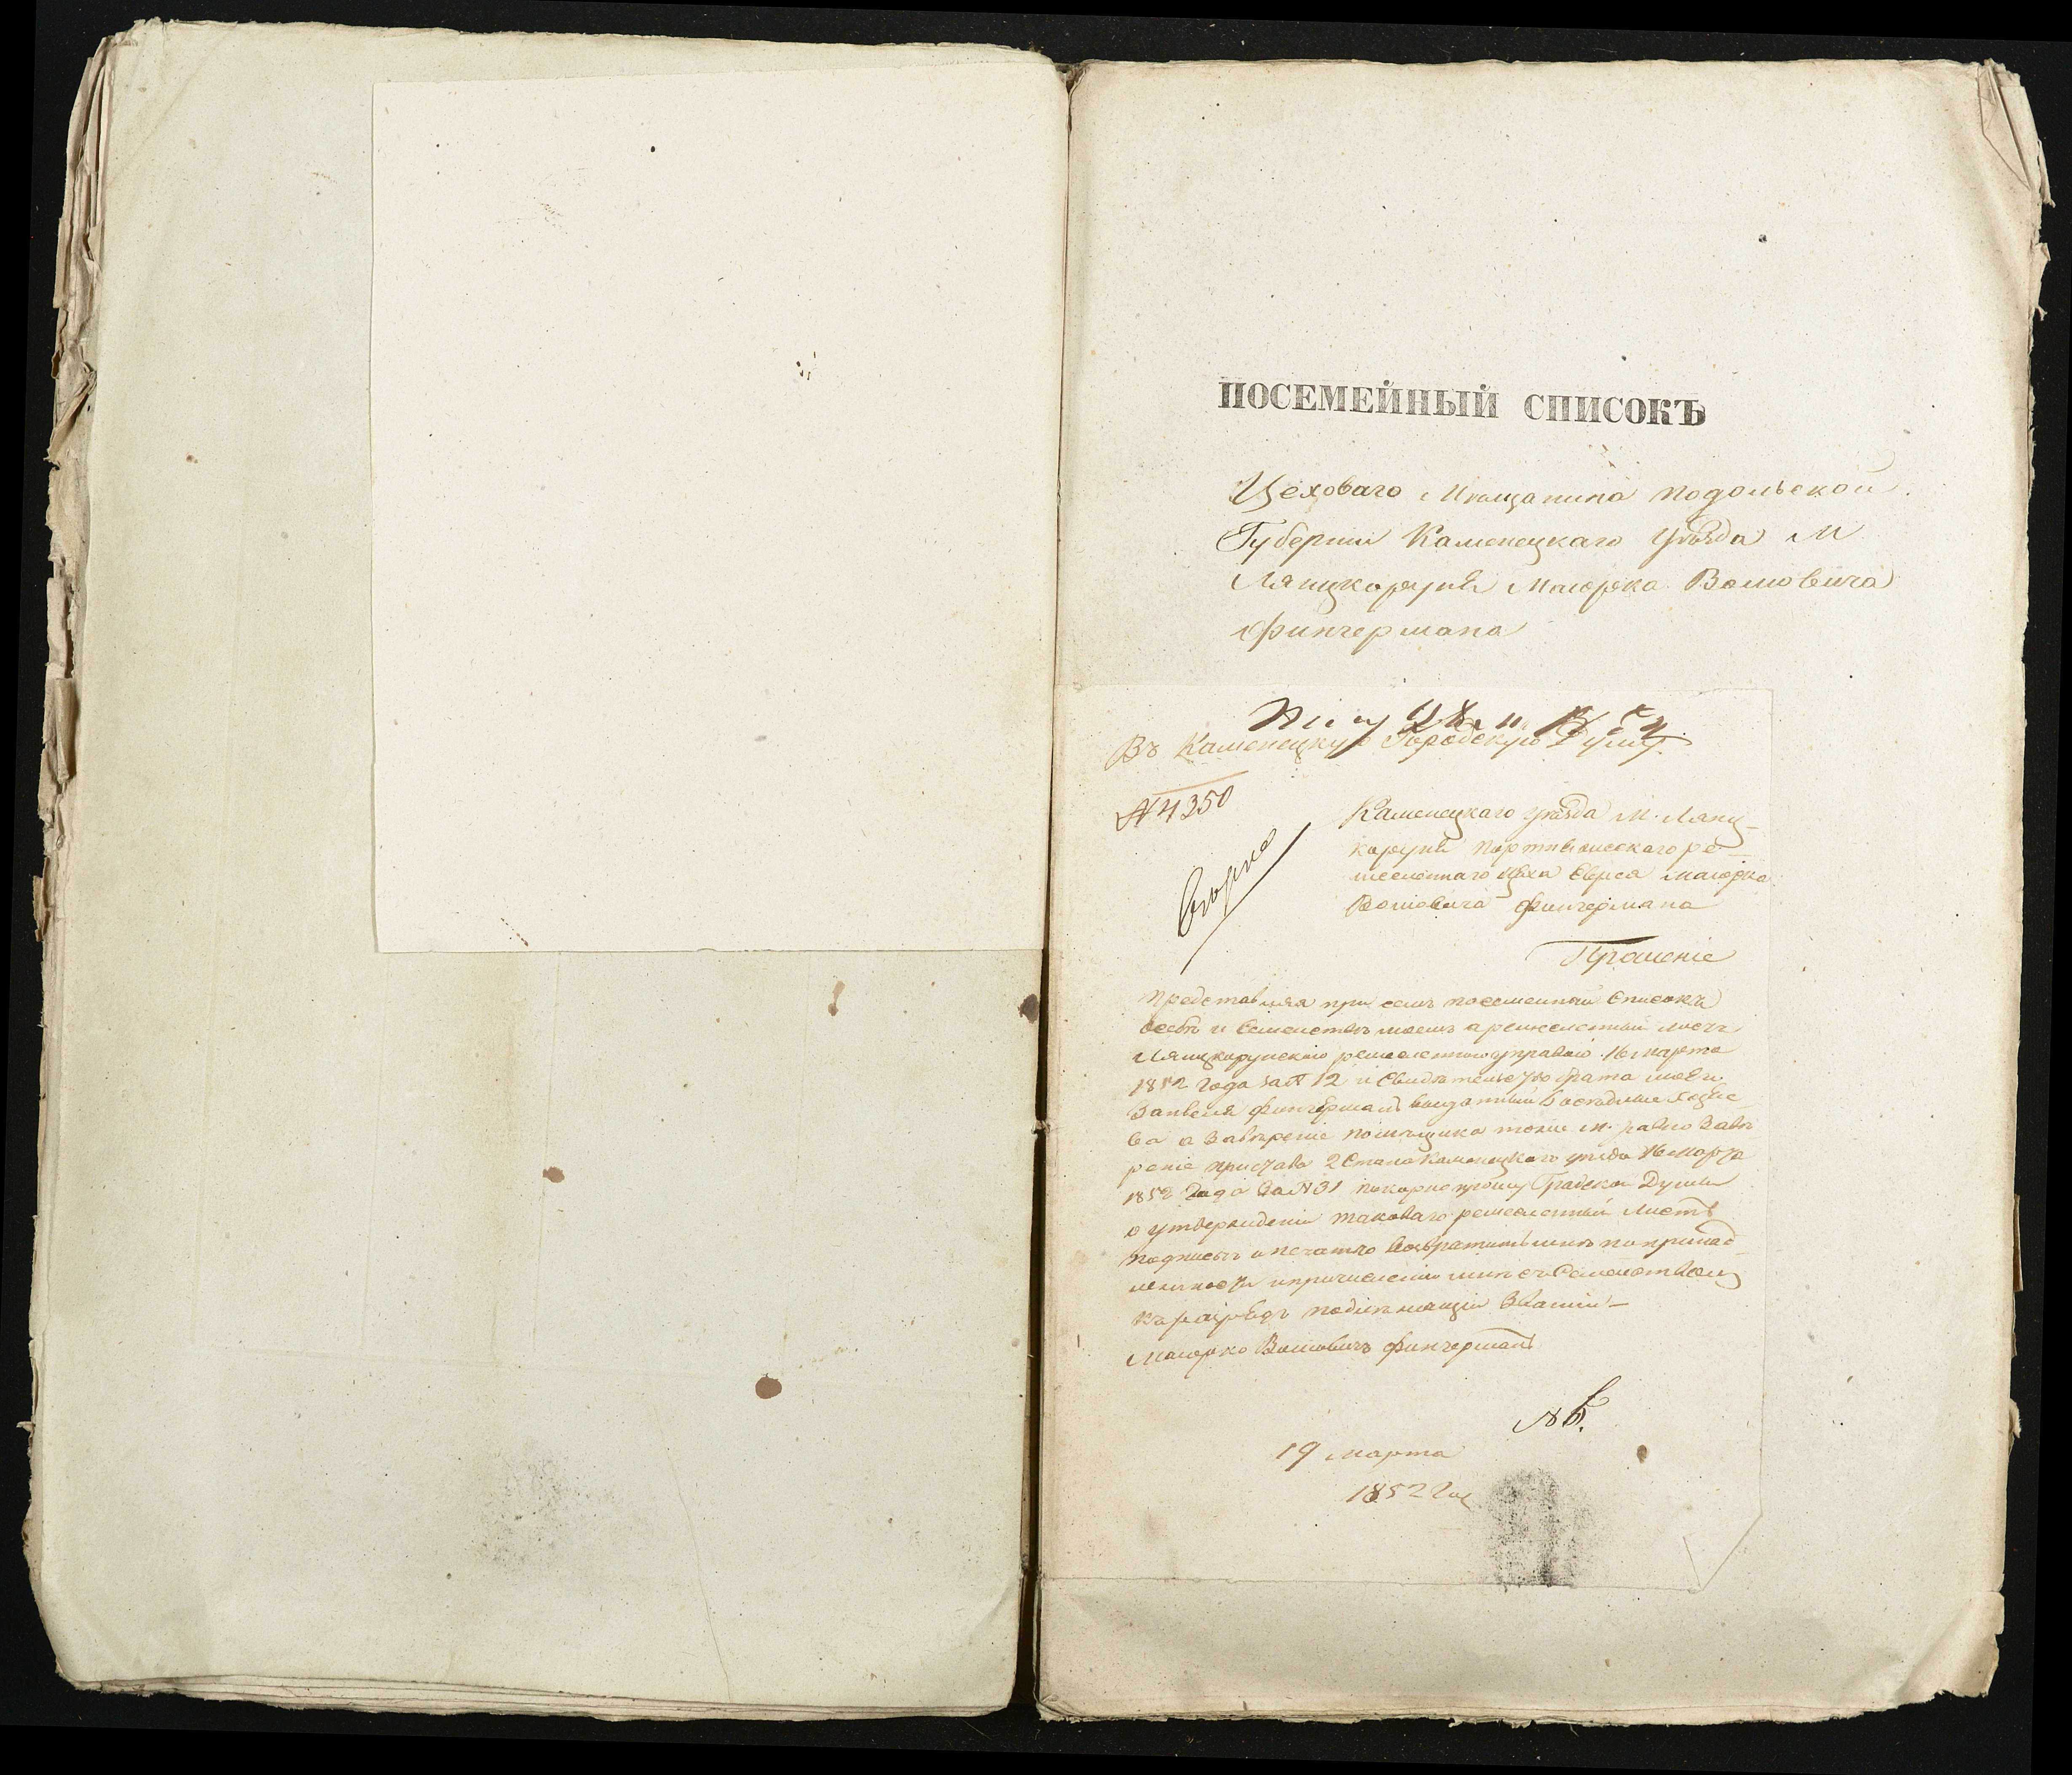 ПОСЕМЕЙНЫЙ СПИСОКЪ
Цеховаго Мѣщанина Подольской
Губерніи Каменецкаго Уѣзда М
Ляцкоруня Маіорка Вошовича
Финчермана
Въ Каменецкую Городскую Думу.
№ 4350
Каменецкаго уѣзда М. Лянц-
коруня Портняжескаго ре-
месленнаго цеха Еврея Маіорка
Вошовича Финчермана
Прошеніе
Представляя при семъ посемейный Списокъ
о себѣ и Семействѣ моемъ а ремесленный листъ
Лянцкорунскаго ремесленного управы 16 марта
1852 года за № 12 и Свидѣтельство брата моего
Финчерманъ
а Завѣреніе помѣщика М. равно Завѣ
реніе пристава 2 Стана Каменецкаго уѣзда 16 марта
1852 года За № 31 покорно прошу Градской Думы
о утвержденіи таковаго ремесленный листъ
подписью и печатью возвратить мнѣ по принад
лежности и причисленіи мнѣ съ Семействомъ
Званіи
Маіорко Вошовичъ Финчерманъ
19 марта
1852 год